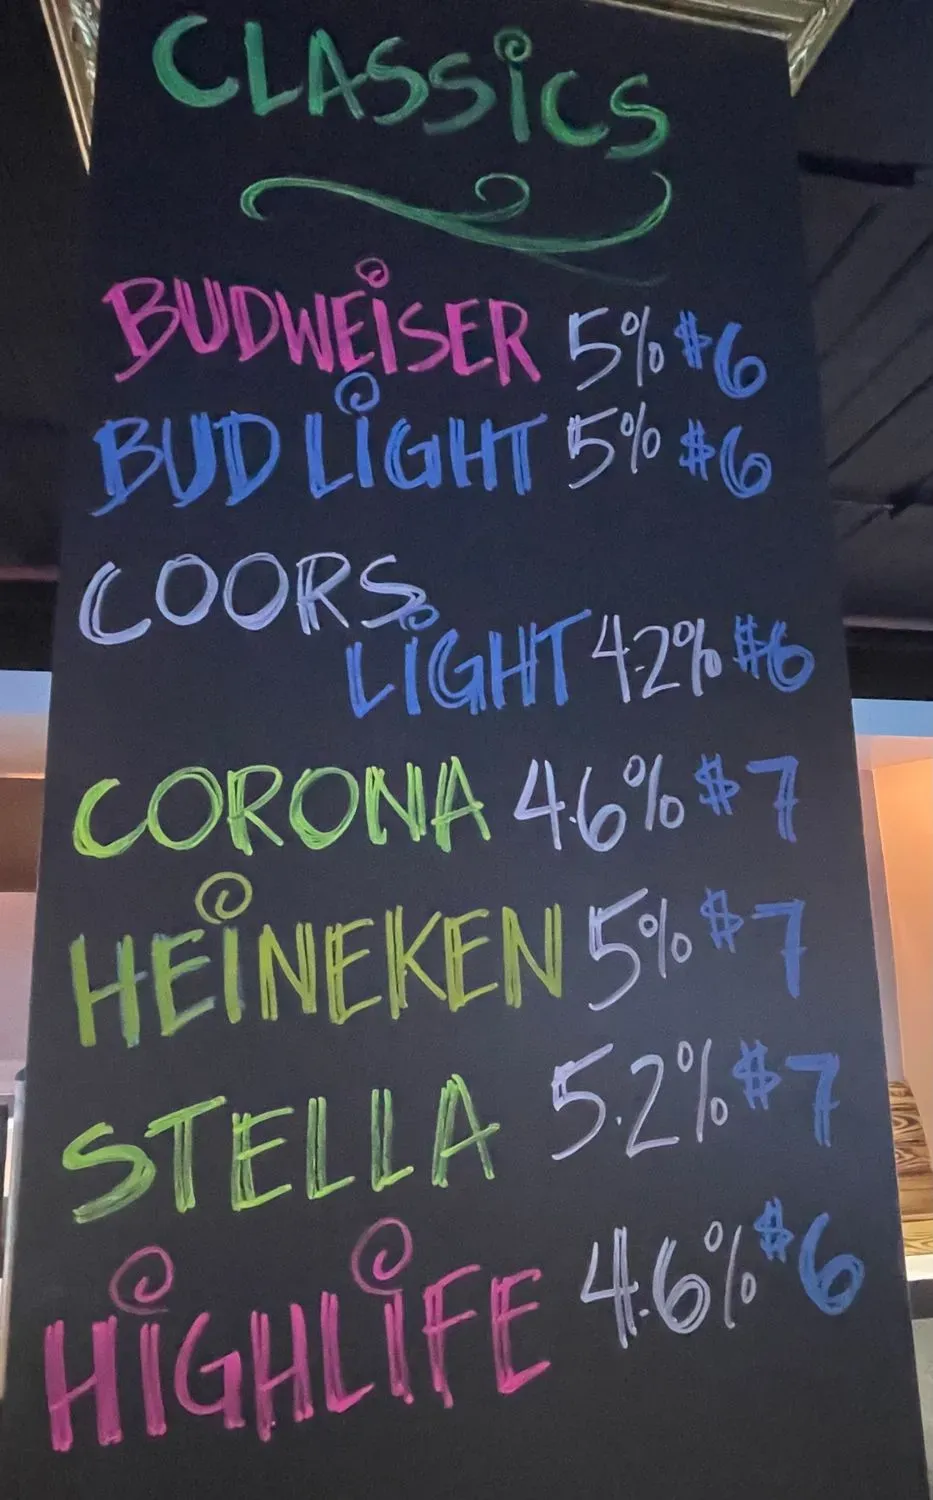 CLASSiCS
BUDWEiSER 5% $6
BUD LiGHT 5% $6
COORS
LiGHT 4.2% $6
CORONA 4.6% $7
HEiNEKEN 5% $7
STELLA 5.2% $7
HiGHLiFE 4.6% $6